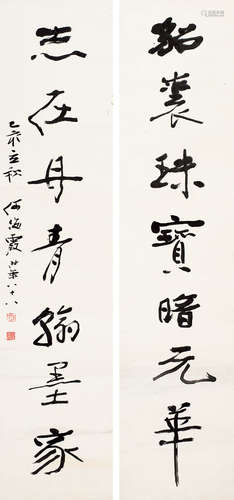 貂裘珠寶暗元華
志在丹青翰墨家
乙亥立秋
何海霞 八十八